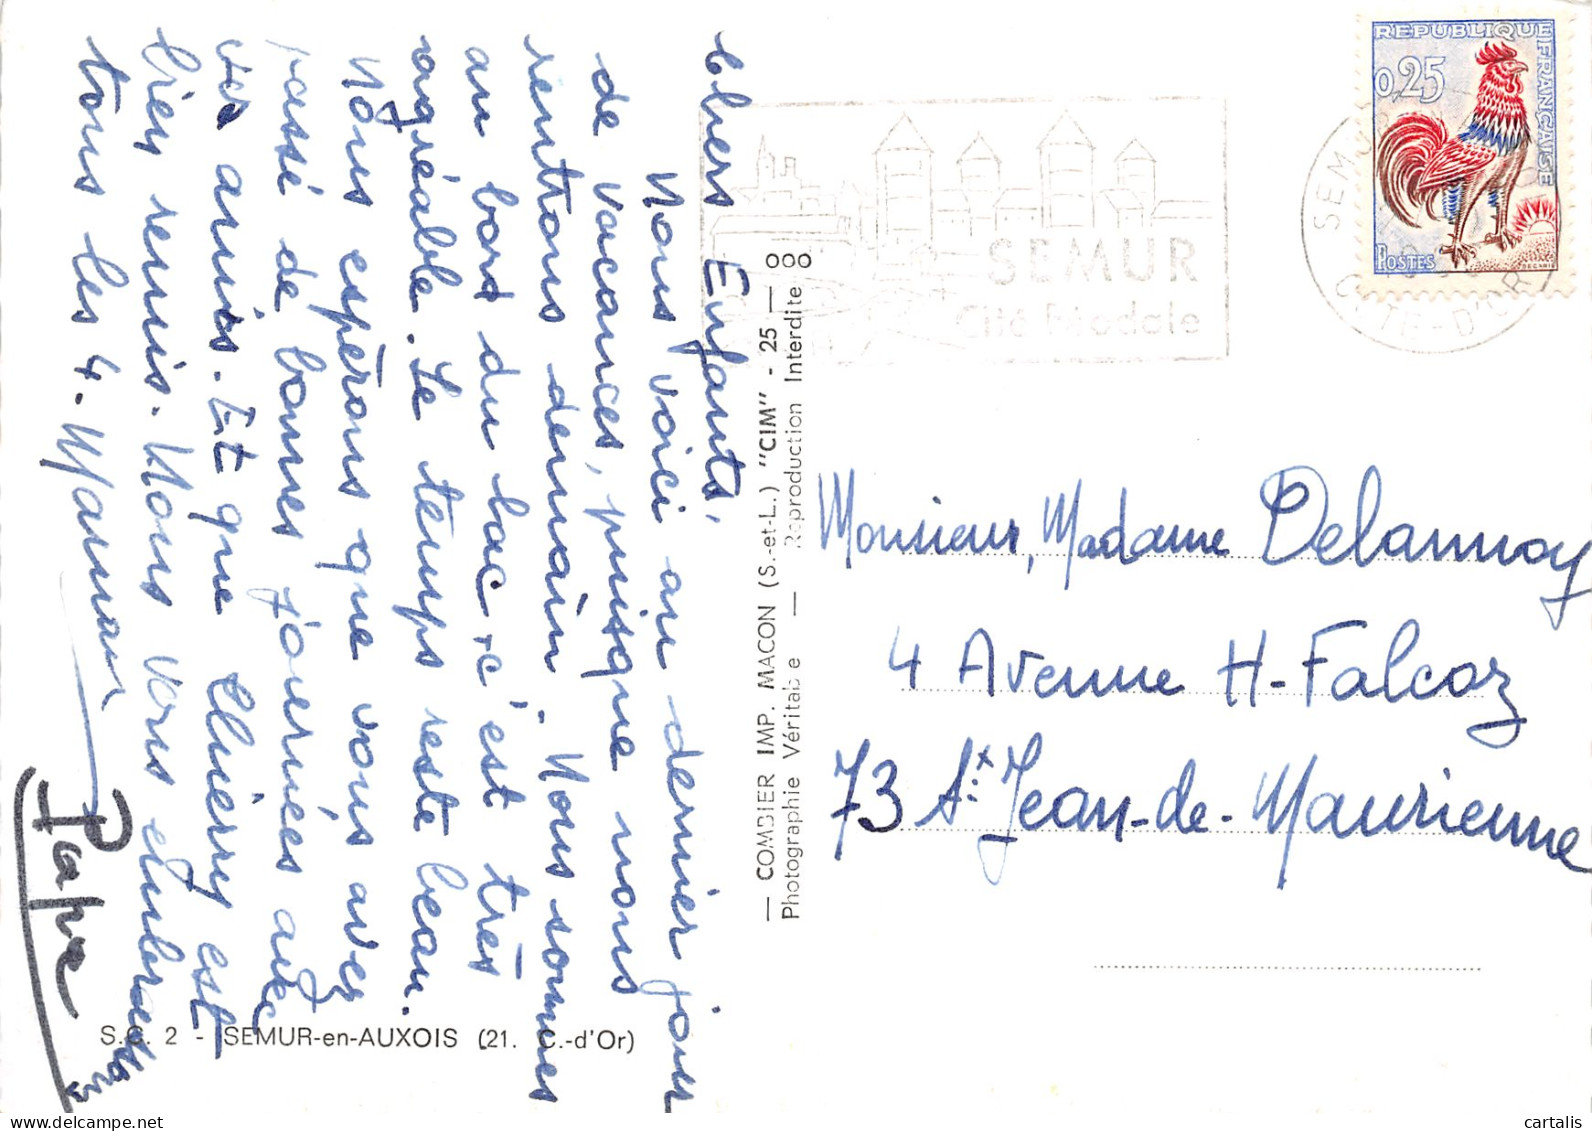 Chers Enfants,
Nous voici au dernier jour
de vacances, puisque nous
rentrons demain. Nous sommes
au bord du lac, c'est très
agréable. Le temps reste beau.
Nous espérons que vous avez
passé de bonnes journées avec
vos amis. Et que Thierry est
bien remis. Nous vous embrassons
tous les 4. Maman
Papa
S.C. 2 - SEMUR-en-AUXOIS (21. C.-d'Or)
— COMBIER IMP. MACON (S.-et-L.) "CIM" - 25 —
Photographie Véritable — Reproduction Interdite
SEMUR
Cité Féodale
SEMUR
COTE-D'OR
REPUBLIQUE FRANÇAISE
0,25
POSTES
DECARIS
Monsieur, Madame Delannoy
4 Avenue H-Falcoz
73 St Jean-de-Maurienne
cartalis